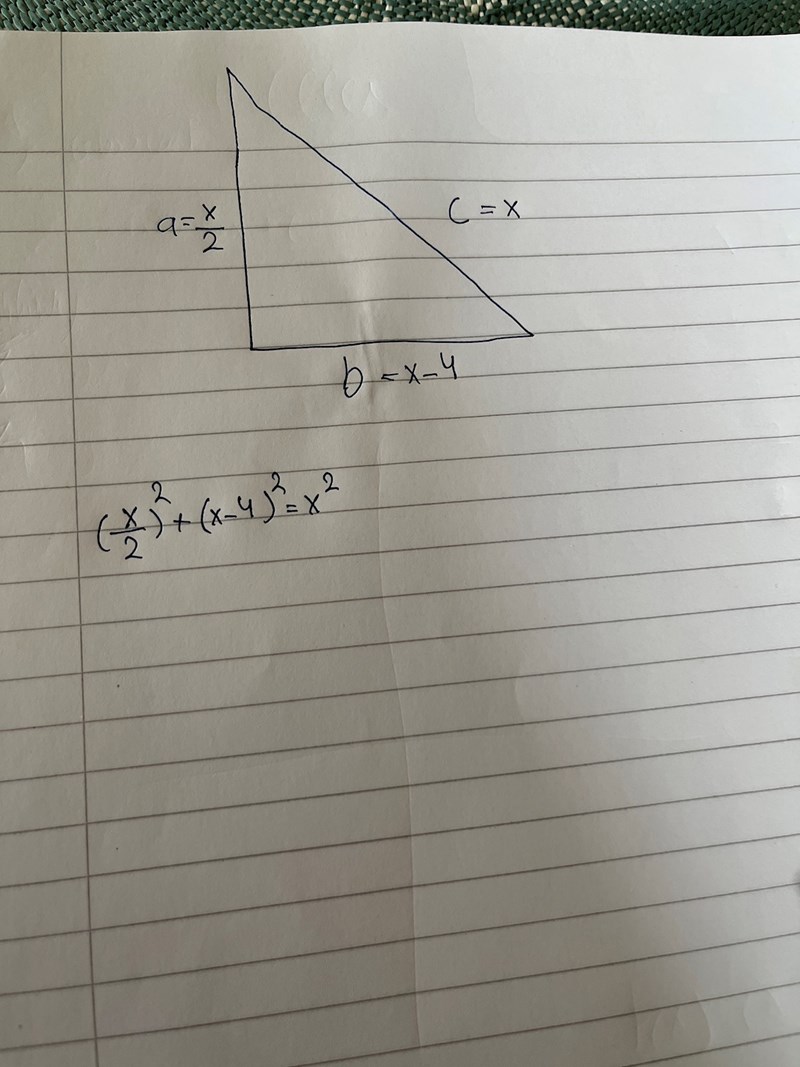 a = x/2
c = x
b = x-4
(x/2)² + (x-4)² = x²